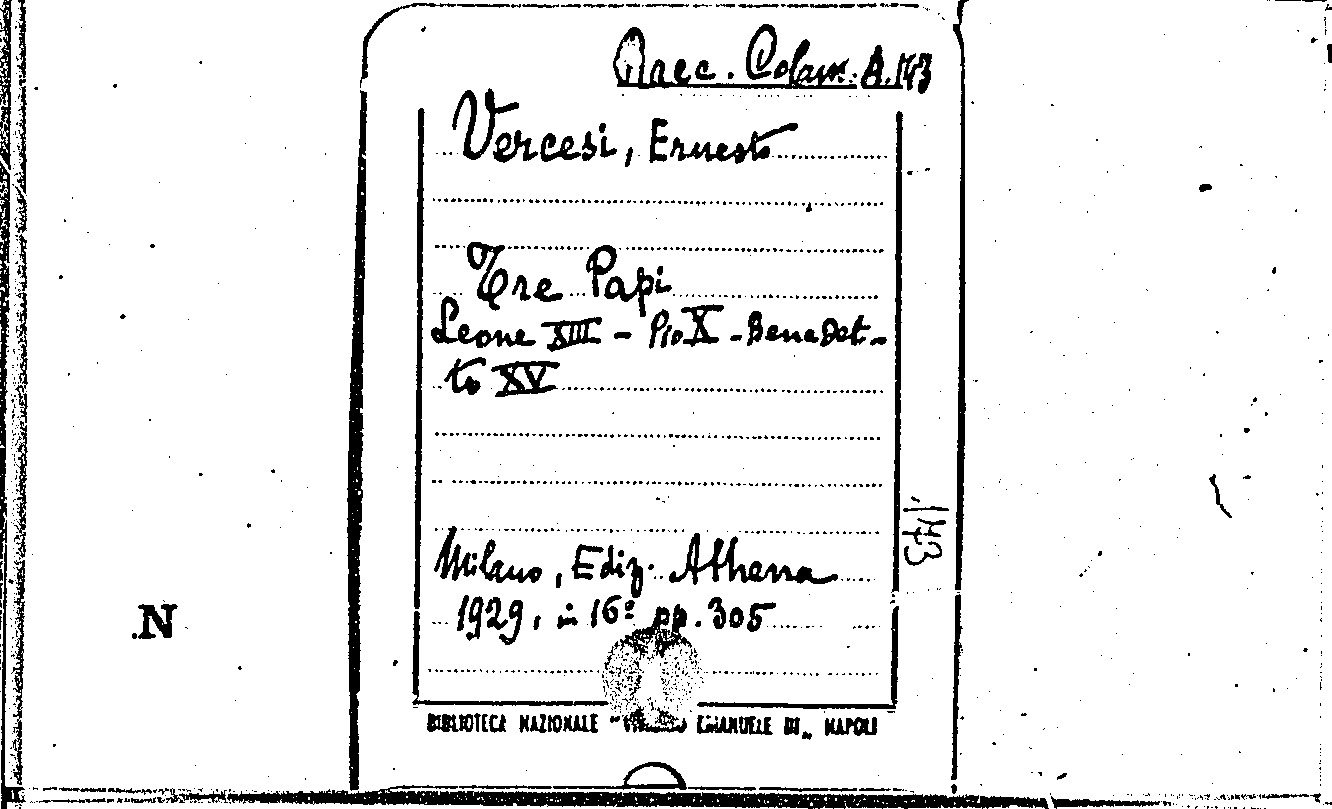 Racc. Colam. A.143
Vercesi, Ernesto
Tre Papi
Leone XIII - Pio X - Benedet-
to XV
Milano, Ediz. Athena
1929, in 16º pp. 305
143
BIBLIOTECA NAZIONALE "VITTORIO EMANUELE III„ NAPOLI
N